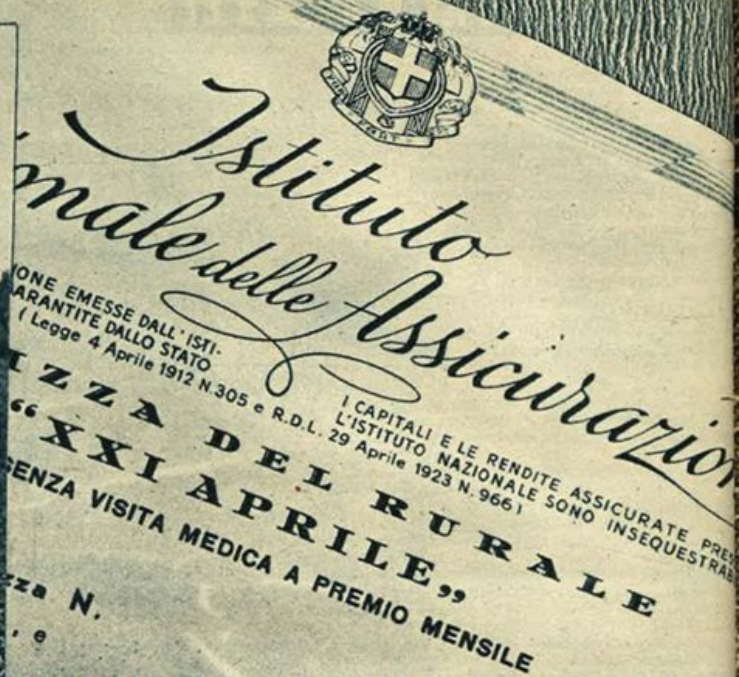 FERT
Istituto
nale delle Assicurazion
IONE EMESSE DALL'ISTI-
ARANTITE DALLO STATO
I CAPITALI E LE RENDITE ASSICURATE PRES
L'ISTITUTO NAZIONALE SONO INSEQUESTRAB
( Legge 4 Aprile 1912 N.305 e R.D.L. 29 Aprile 1923 N.966 )
IZZA DEL RURALE
“XXI APRILE„
SENZA VISITA MEDICA A PREMIO MENSILE
zza N.
, e